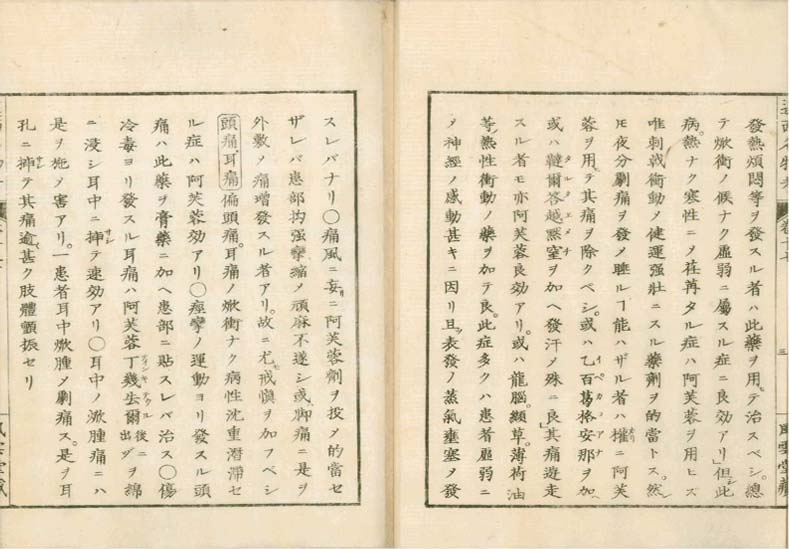 發熱煩悶等ヲ發スル者ハ此藥ヲ用テ治スベシ。總
テ焮衝ノ候ナク虛弱ニ屬スル症ニ良効アリ」但シ此
病。熱ナク寒性ニメ荏苒タル症ハ阿芙蓉ヲ用ヒズ
唯刺戟衝動メ健運强壯ニスル藥劑ヲ的當トス。然レ
𪜈夜分劇痛ヲ發メ睡ルヿ能ハザル者ハ權ニ阿芙
蓉ヲ用テ其痛ヲ除クベシ。或ハ乙百葛格安那ヲ加ヘ
或ハ韃爾答越黙窒ヲ加ヘ發汗メ殊ニ良」其痛遊走
スル者モ亦阿芙蓉良効アリ。或ハ龍腦。纈草。薄荷油
等。熱性衝動ノ藥ヲ加テ良。此症多クハ患者虛弱ニ
メ神經ノ感動甚キニ因リ且ツ表發ノ蒸氣壅塞メ發
三
風雲堂藏
スレバナリ〇痛風ニ妄リニ阿芙蓉劑ヲ投メ的當セ
ザレバ患部拘强攣縮メ頑麻不遂シ或脚痛ニ是ヲ
外敷メ痛增發スル者アリ。故ニ尤モ戒愼ヲ加フベシ
頭痛耳痛 偏頭痛。耳痛ノ焮衝ナク病性沈重潜滯セ
ル症ハ阿芙蓉効アリ〇痙攣ノ運動ヨリ發スル頭
痛ハ此藥ヲ膏藥ニ加ヘ患部ニ貼スレバ治ス〇傷
冷毒ヨリ發スル耳痛ハ阿芙蓉丁幾㞮爾後ニ出ヅヲ綿
ニ浸シ耳中ニ挿テ速効アリ〇耳中ノ焮腫痛ニハ
是ヲ施メ害アリ。一患者耳中焮腫メ劇痛ス。是ヲ耳
孔ニ挿テ其痛逾甚ク肢體顫振セリ